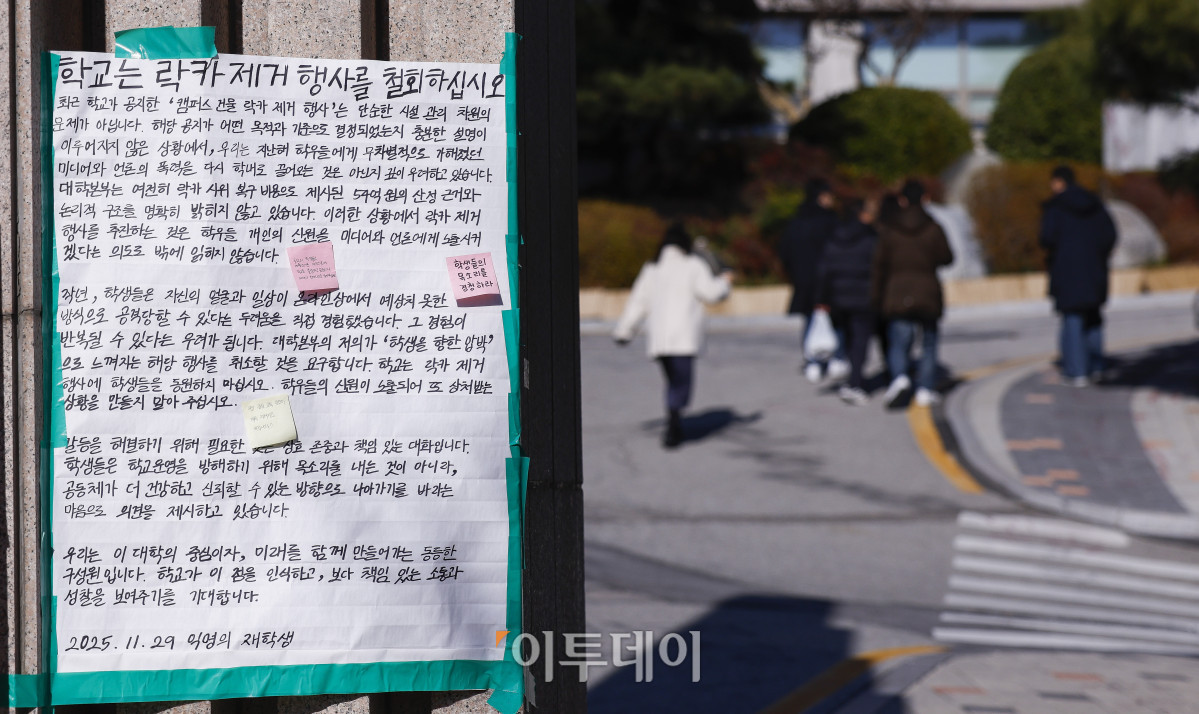 학교는 락카 제거 행사를 철회하십시오
최근 학교가 공지한 '캠퍼스 건물 락카 제거 행사'는 단순한 시설 관리 차원의
문제가 아닙니다. 해당 공지가 어떤 목적과 기준으로 결정되었는지 충분한 설명이
이루어지지 않은 상황에서, 우리는 지난해 학우들에게 무차별적으로 가해졌던
미디어와 언론의 폭력을 다시 학내로 끌어오는 것은 아닌지 깊이 우려하고 있습니다.
대학본부는 여전히 락카 시위 복구 비용으로 제시된 54억 원의 산정 근거와
논리적 구조를 명확히 밝히지 않고 있습니다. 이러한 상황에서 락카 제거
행사를 추진하는 것은 학우들 개인의 신원을 미디어와 언론에게 노출시키
겠다는 의도로 밖에 읽히지 않습니다.
학생들의
목소리를
경청하라
작년, 학생들은 자신의 얼굴과 일상이 온라인상에서 예상치 못한
방식으로 공격당할 수 있다는 두려움을 직접 경험했습니다. 그 경험이
반복될 수 있다는 우려가 큽니다. 대학본부의 저의가 '학생을 향한 압박'
으로 느껴지는 해당 행사를 취소할 것을 요구합니다. 학교는 락카 제거
행사에 학생들을 동원하지 마십시오. 학우들의 신원이 노출되어 또 상처받는
상황을 만들지 말아 주십시오.
갈등을 해결하기 위해 필요한 것은 상호 존중과 책임 있는 대화입니다.
학생들은 학교운영을 방해하기 위해 목소리를 내는 것이 아니라,
공동체가 더 건강하고 신뢰할 수 있는 방향으로 나아가기를 바라는
마음으로 의견을 제시하고 있습니다.
우리는 이 대학의 중심이자, 미래를 함께 만들어가는 동등한
구성원입니다. 학교가 이 점을 인식하고, 보다 책임 있는 소통과
성찰을 보여주기를 기대합니다.
2025. 11. 29 익명의 재학생
이투데이